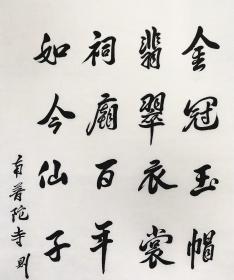 金冠玉帽
翡翠衣裳
祠廟百年
如今仙子
南普陀寺則